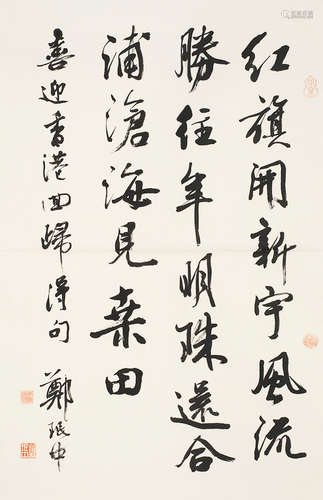 红旗开新宇風流
勝往年明珠還合
浦滄海見桒田
喜迎香港回歸得句
鄭珉中